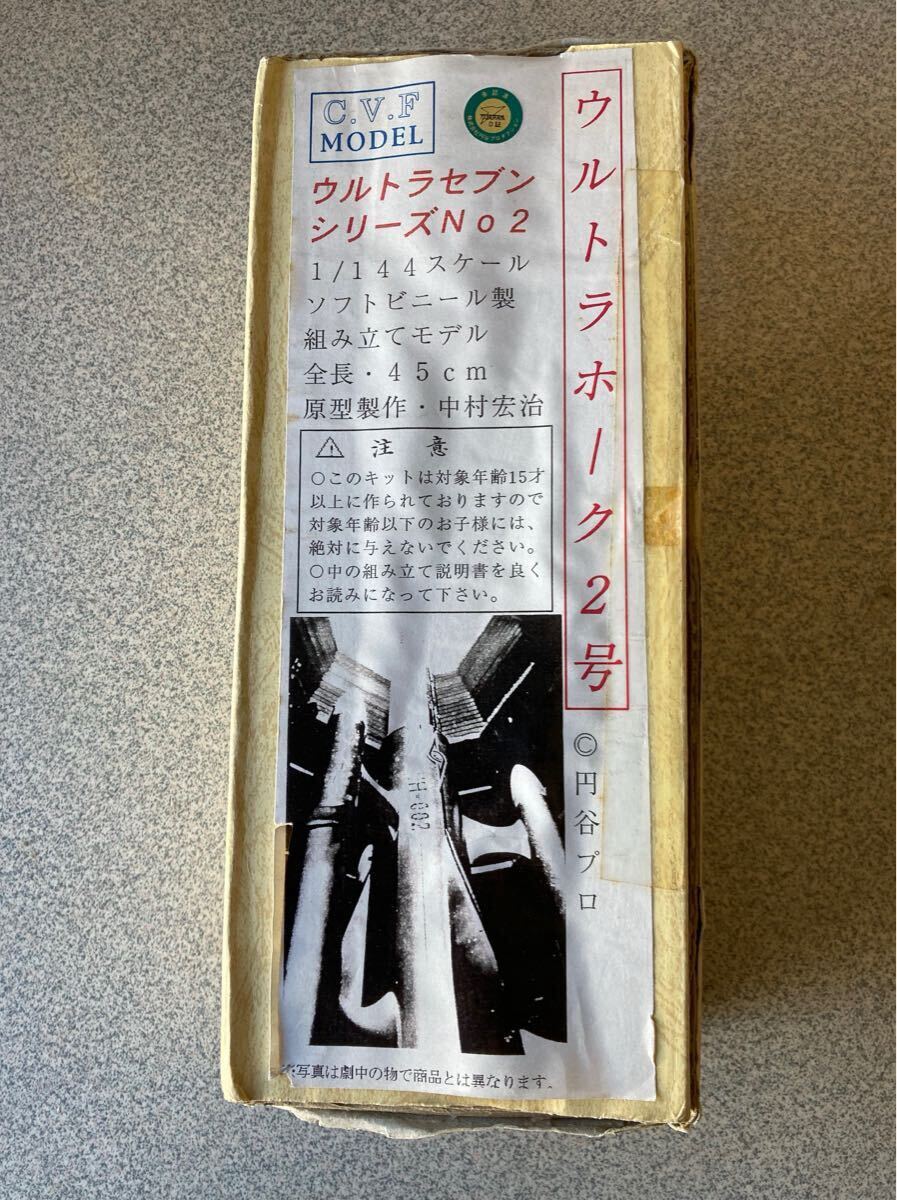 C.V.F
MODEL
ウルトラセブン
シリーズNo2
1/144スケール
ソフトビニール製
組み立てモデル
全長・45cm
原型製作・中村宏治
⚠ 注 意
○このキットは対象年齢15才
以上に作られておりますので
対象年齢以下のお子様には、
絶対に与えないでください。
○中の組み立て説明書を良く
お読みになって下さい。
ウルトラホーク2号
©円谷プロ
H-002
※写真は劇中の物で商品とは異なります。